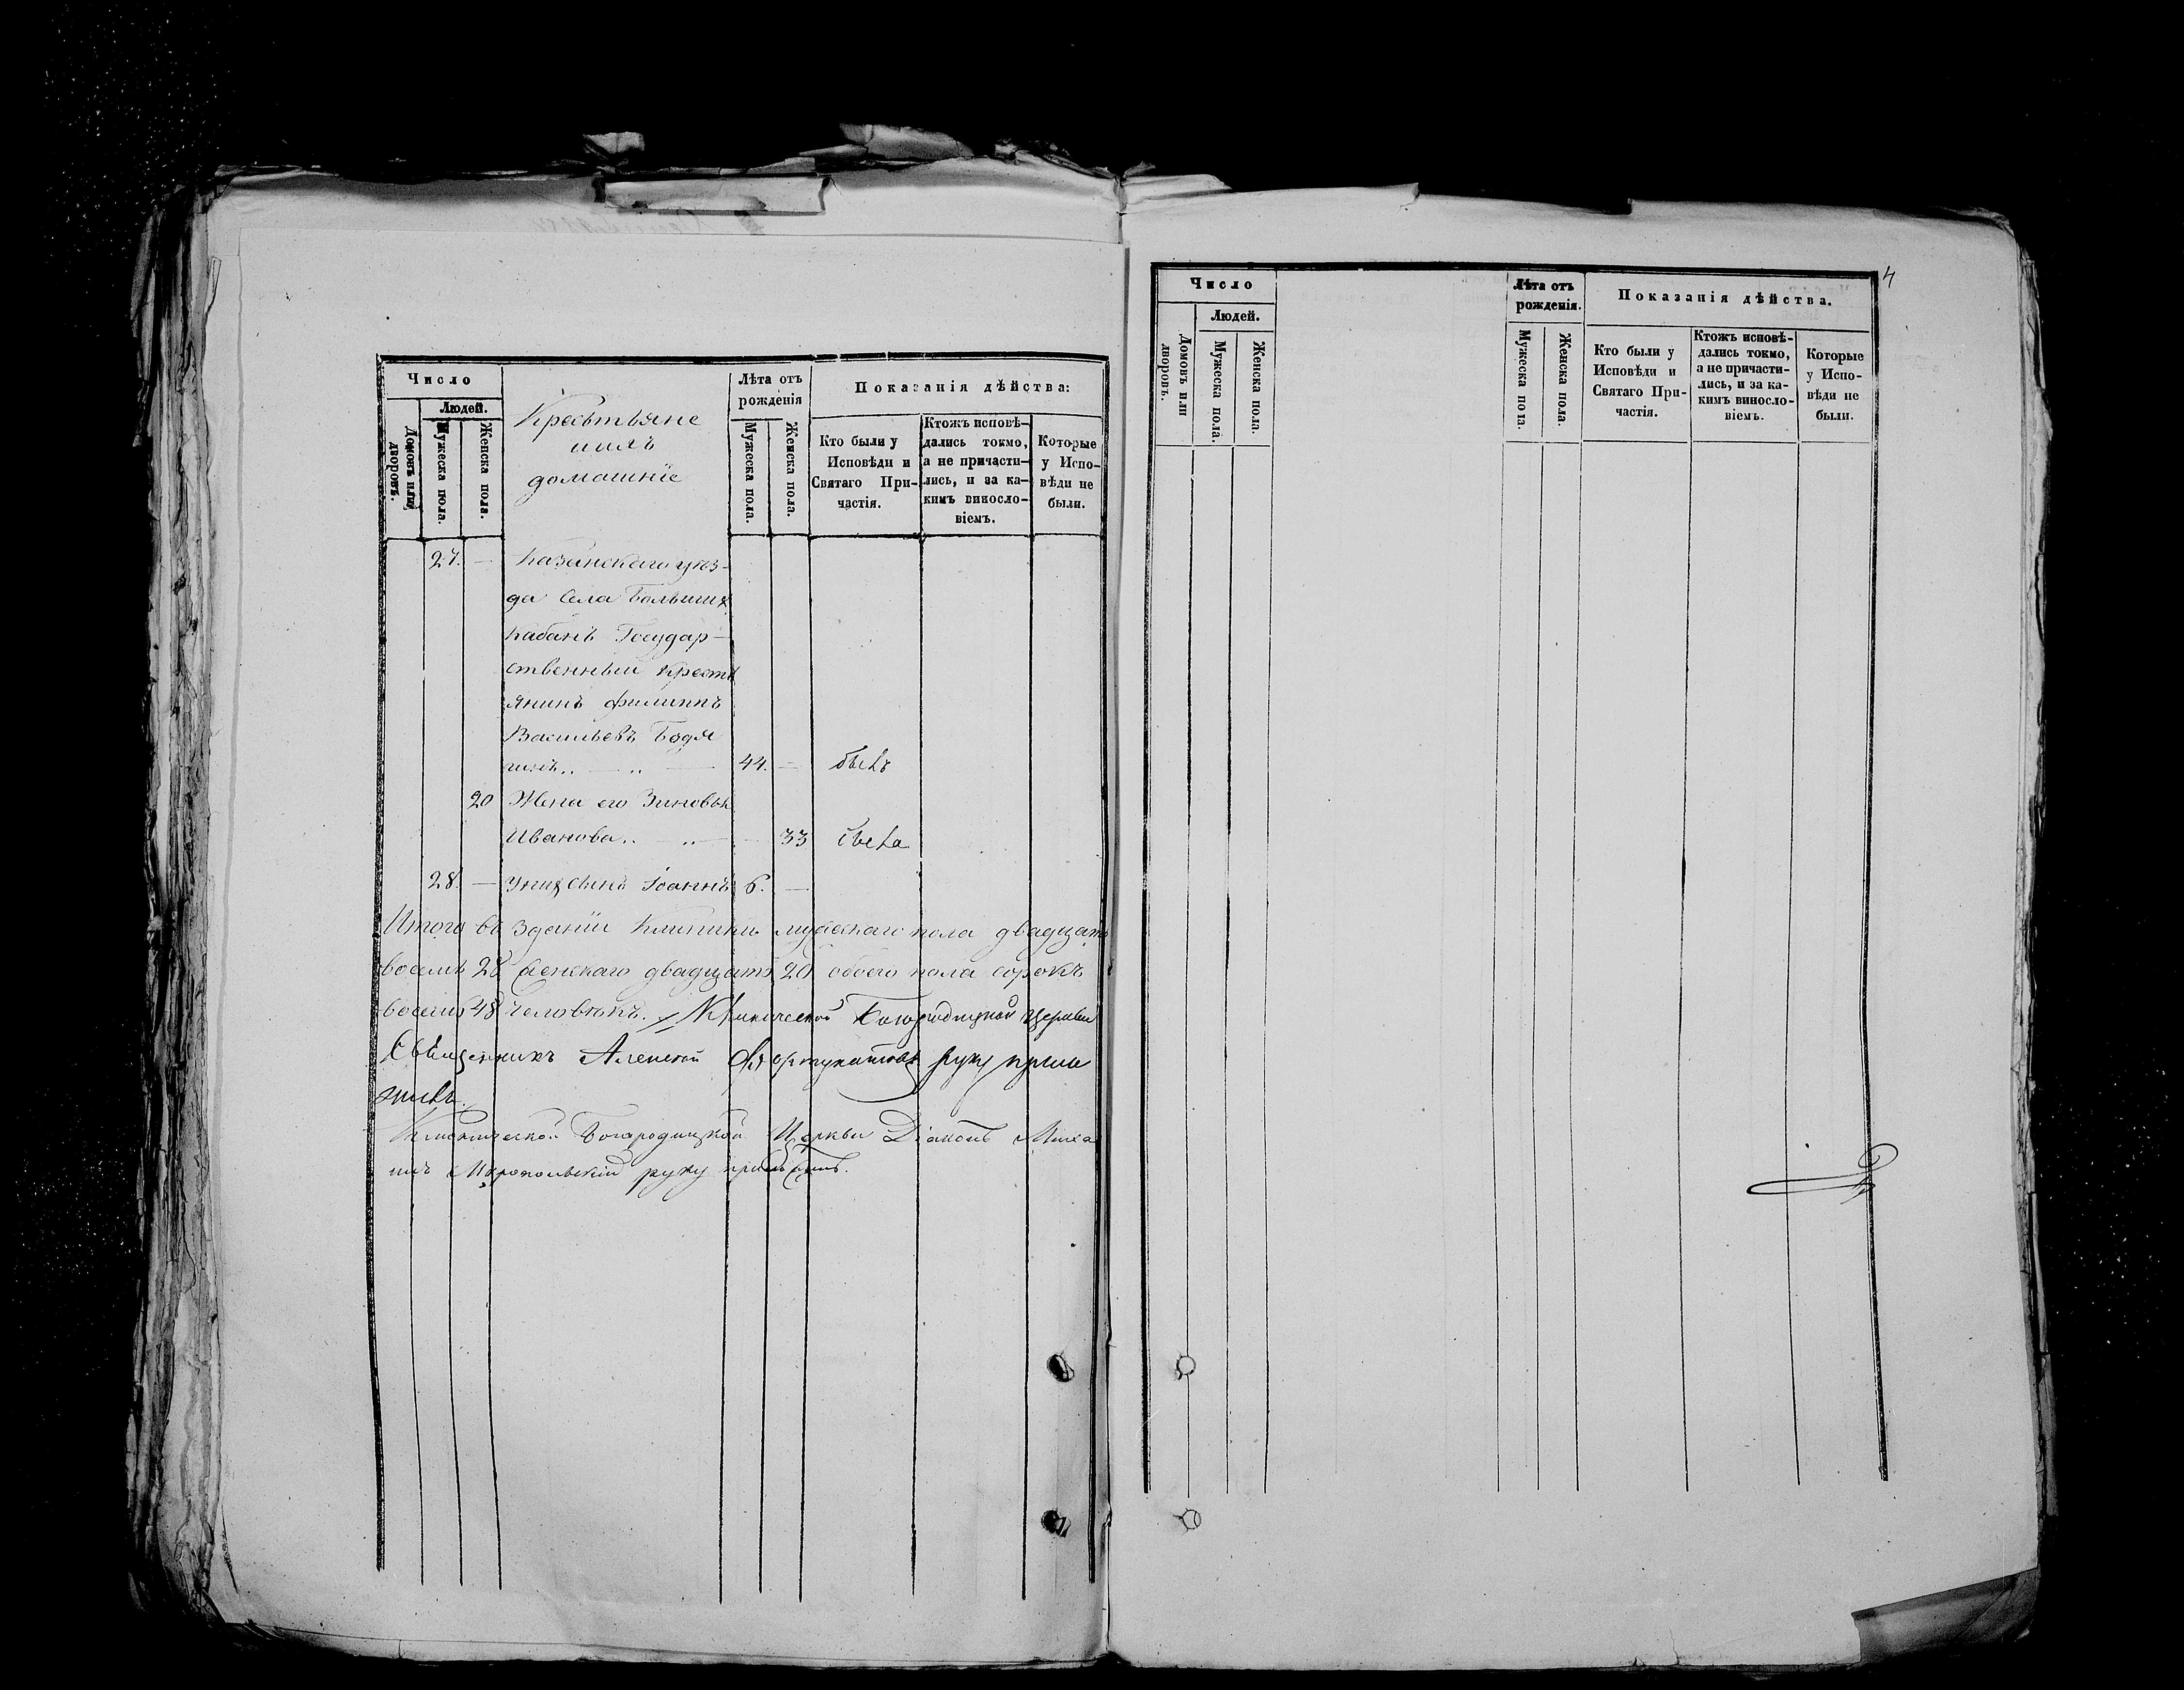 Число
Людей.
Домовъ или дворовъ.
Мужеска пола.
Женска пола.
Крестьяне
домашніе
Лѣта отъ рожденія
Мужеска пола.
Женска пола.
Показанія дѣйства:
Кто были у Исповѣди и Святаго При-
частія.
Ктожъ исповѣ-
дались токмо,
а не причасти-
лись, и за ка-
кимъ виносло-
віемъ.
Которые
у Испо-
вѣди не
были.
27. — Казанскаго уѣз-
да Села Большихъ
Кабанъ Государ-
ственный Кресть
янинъ Филиппъ
Васильевъ Бодя
гинъ 44. — былъ
20 Жена его Зиновья
Иванова — 33 была
28. — У нихъ сынъ Іоаннъ 6. —
Итого въ зданіи Клиники мужескаго пола двадцать
восемь 28 женскаго двадцать 20 обоего пола сорокъ
восемь 48 человѣкъ. Клинической Богородицкой Церкви
Священникъ Алексей руку прило
жилъ.
Клинической Богородицкой Церкви Діаконъ Миха
илъ руку приложилъ.
4
Число
Людей.
Домовъ или дворовъ.
Мужеска пола.
Женска пола.
Лѣта отъ
рожденія.
Мужеска пола.
Женска пола.
Показанія дѣйства.
Кто были у
Исповѣди и
Святаго При-
частія.
Ктожъ исповѣ-
дались токмо,
а не причасти-
лись, и за ка-
кимъ виносло-
віемъ.
Которые
у Испо-
вѣди не
были.